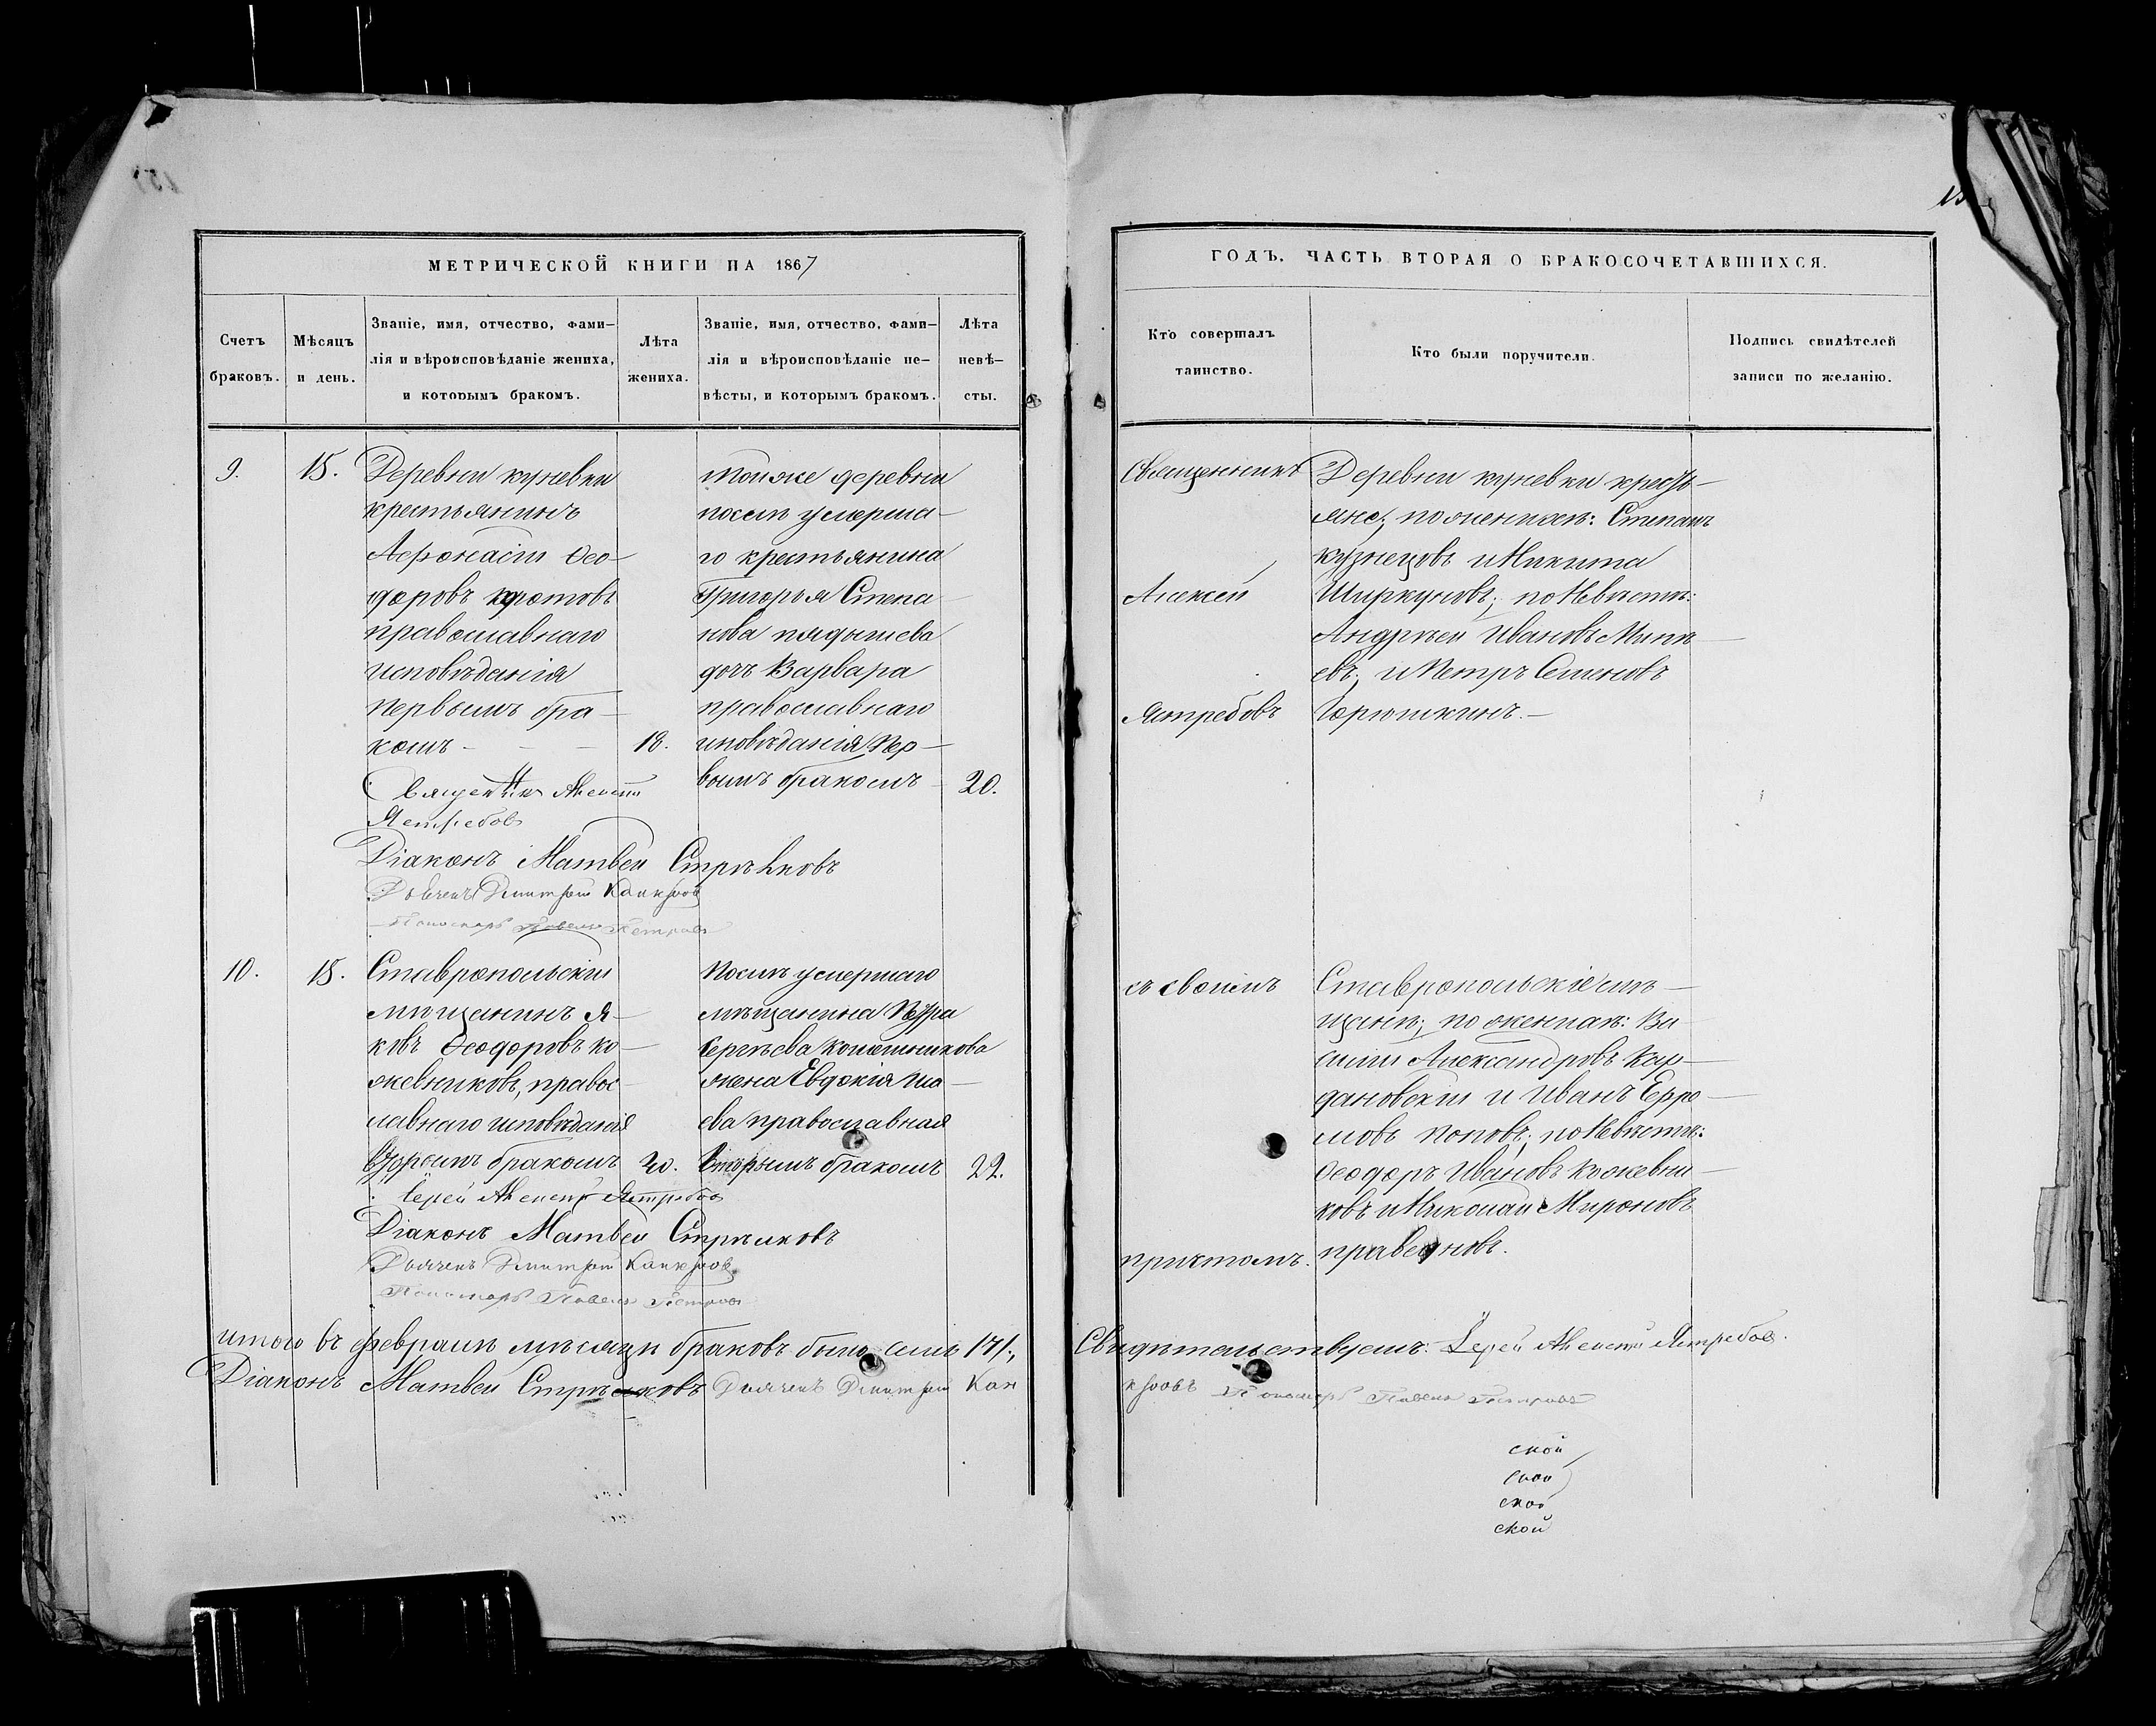 МЕТРИЧЕСКОЙ КНИГИ НА 1867
Счетъ браковъ.
Мѣсяцъ и день.
Званіе, имя, отчество, фами-
лія и вѣроисповѣданіе жениха,
и которымъ бракомъ.
Лѣта жениха.
Званіе, имя, отчество, фами-
лія и вѣроисповѣданіе не-
вѣсты, и которымъ бракомъ.
Лѣта невѣ-
сты.
9.
15.
Деревни куневки
крестьянинъ
Афонасій Ѳео-
доровъ кротовъ
православнаго
исповѣданія
первымъ бра-
комъ
18.
тойже деревни
послѣ умерша-
го крестьянина
Григорья Степа
нова пядышева
дочь Варвара
православнаго
исповѣданія пер-
вымъ бракомъ
20.
Священникъ Алексій
Ястребовъ
Діаконъ Матвей Стрѣлковъ
Дьячекъ Димитрій
Пономарь Павелъ Петровъ
10.
15.
Ставропольскій
мѣщанинъ Я-
ковъ Ѳеодоровъ ко-
жевниковъ, правос-
лавнаго исповѣданія
вторымъ бракомъ
20.
Послѣ умершаго
мѣщанина Петра
Сергѣева
жена Евдокія
ева православная
вторымъ бракомъ
22.
Іерей Алексій Ястребовъ
Діаконъ Матвей Стрѣлковъ
Дьячекъ Димитрій
Пономарь Павелъ Петровъ
итого въ февралѣ мѣсяцѣ браковъ было семь /7/.
Діаконъ Матвей Стрѣлковъ Дьячекъ Димитрій
ГОДЪ. ЧАСТЬ ВТОРАЯ О БРАКОСОЧЕТАВШИХСЯ.
Кто совершалъ
таинство.
Кто были поручители.
Подпись свидѣтелей
записи по желанію.
Священникъ
Алексѣй
Ястребовъ
Деревни куневки кресть-
яне; по женихѣ: Степанъ
кузнецовъ и Никита
Ширкуновъ; по Невѣстѣ:
Андрѣй Ивановъ Минѣ-
евъ; и Петръ Семеновъ
Горюшкинъ.
съ своимъ
причтомъ.
Ставропольскіе мѣ-
щане; по женихѣ: Ва-
силій Александровъ Кар-
дановскій и Иванъ Ефре-
мовъ поповъ; по Невѣстѣ:
Ѳеодоръ Ивановъ Кожевни-
ковъ и Николай Мироновъ
Свидѣтельствуемъ: Іерей Алексій Ястребовъ.
Пономарь Павелъ Петровъ
ской
ской
ской
ской